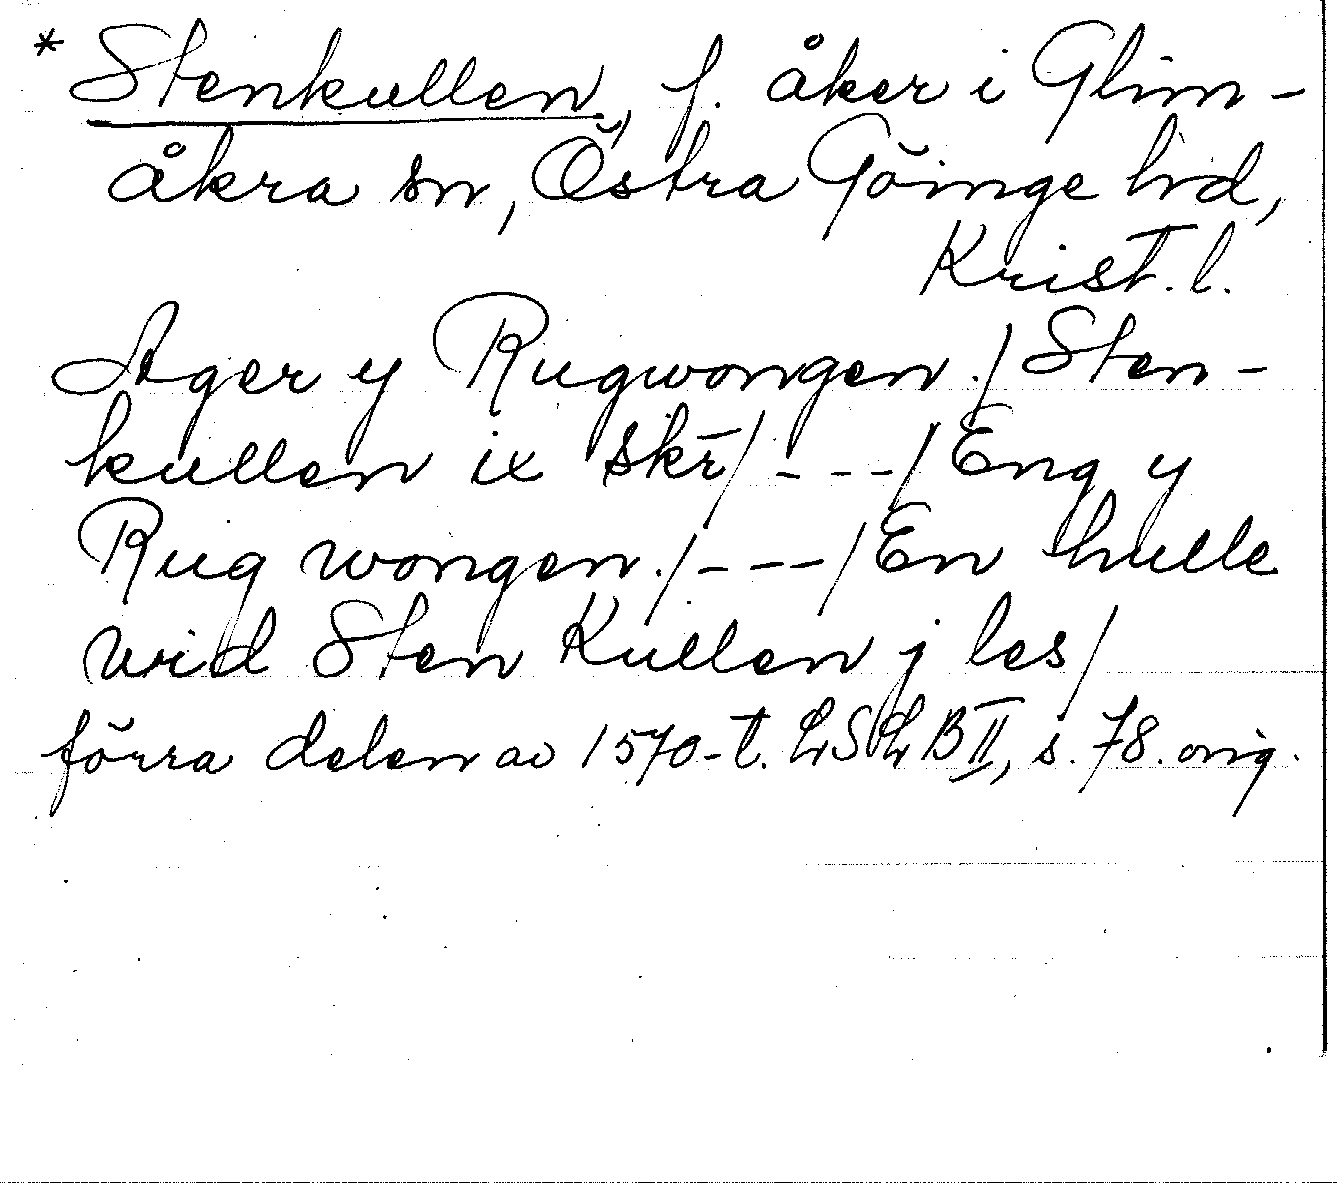 * Stenkullen, f. åker i Glim-
åkra sn, Östra Göinge hd,
Krist. l.
Ager y Rugwongen./Sten-
kullen ix skr̄/---/Eng y
Rug wongen./---/En hulle
wid Sten Kullen j les/
förra delen av 1570-t. LSLB II, s. 78. orig.